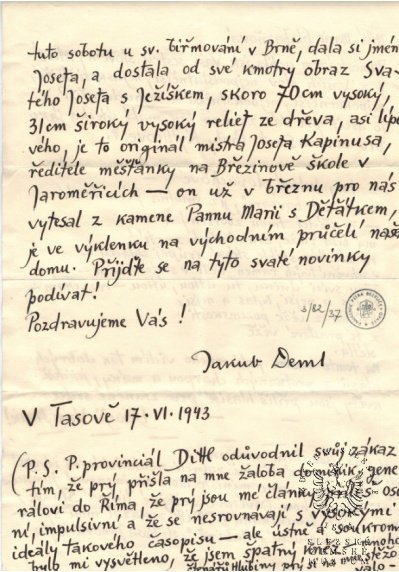 tuto sobotu u sv. biřmování v Brně, dala si jmén
Josefa, a dostala od své kmotry obraz Sva-
tého Josefa s Ježíškem, skoro 70cm vysoký,
31cm široký vysoký relief ze dřeva, asi lipo
vého, je to originál mistra Josefa Kapinusa,
ředitele měšťanky na Březinově škole v
Jaroměřicích — on už v březnu pro nás
vytesal z kamene Pannu Marii s Děťátkem,
je ve výklenku na východním průčelí naše
domu. Přijďte se na tyto svaté novinky
podívat!
Pozdravujeme Vás!
3/82/37
Jakub Deml
V Tasově 17. VI. 1943
(P. S. P. provinciál Dittl odůvodnil swůj zákaz
tím, že prý přišla na mne žaloba dominik. gene
rálovi do Říma, že prý jsou mé články oso
ní, impulsivní a že se nesrovnávají s vysokými
ideály takového časopisu — ale ústně a soukrom
bylo mi vysvětleno, že jsem špatný kněz
Hlubiny prý